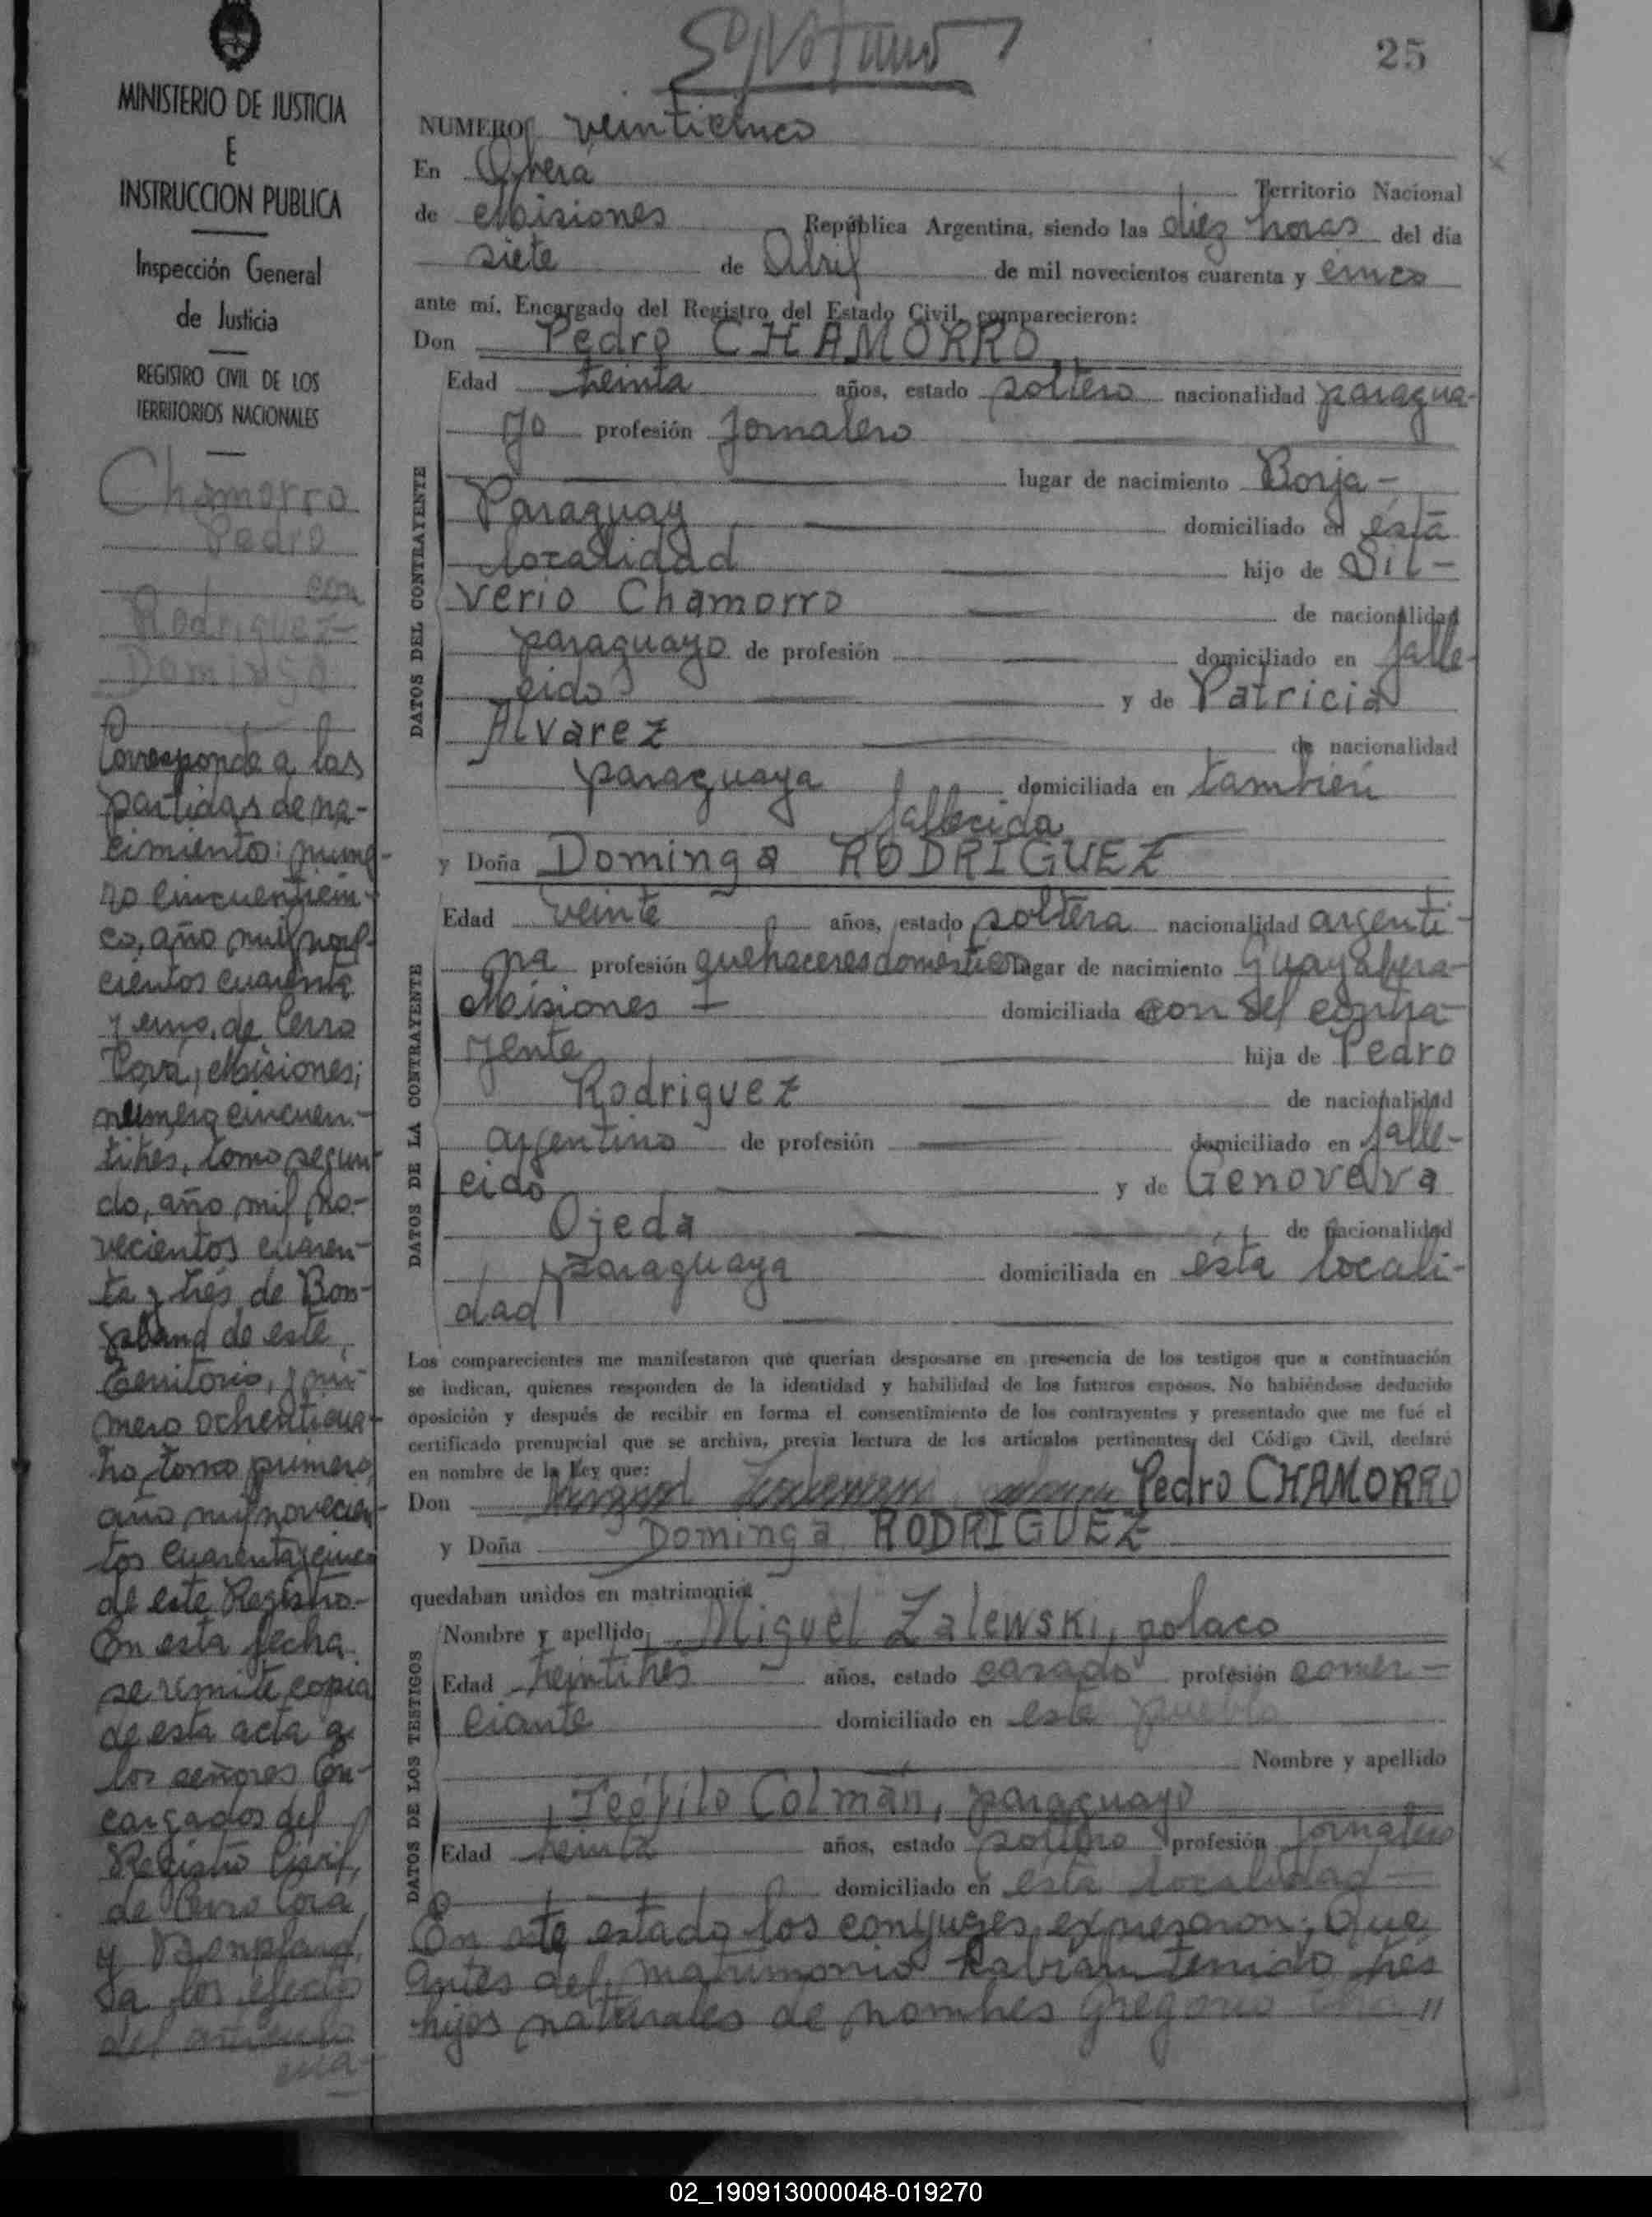 25
MINISTERIO DE JUSTICIA
E
INSTRUCCION PUBLICA
Inspección General
de Justicia
REGISTRO CIVIL DE LOS
TERRITORIOS NACIONALES
Chamorro
Pedro
con
Rodriguez
Dominga
Corresponde a las
partidas de na-
cimiento: núme-
ro cincuenticin-
co, año mil nove-
cientos cuarenta
y uno, de Cerro
Corá, Misiones;
número cincuen-
titrés, tomo segun-
do, año mil no-
vecientos cuaren-
ta y trés de Bon-
pland de este
Territorio, y nú-
mero ochenticua-
tro, tomo primero,
año mil novecien-
tos cuarenta y cinco
de este Registro.-
En esta fecha
se remite copia
de esta acta a
los señores En-
cargados del
Registro Civil,
de Cerro Corá
y Bonpland,
a los efectos
del artículo
NUMERO veinticinco
En Oberá Territorio Nacional
de Misiones República Argentina, siendo las diez horas del día
siete de Abril de mil novecientos cuarenta y cinco
ante mí, Encargado del Registro del Estado Civil, comparecieron:
Don Pedro CHAMORRO
DATOS DEL CONTRAYENTE
Edad treinta años, estado soltero nacionalidad paragua-
yo profesión Jornalero
lugar de nacimiento Borja-
Paraguay domiciliado en ésta
localidad hijo de Sil-
verio Chamorro de nacionalidad
paraguayo de profesión domiciliado en falle-
cido y de Patricia
Alvarez de nacionalidad
paraguaya domiciliada en también
fallecida
y Doña Dominga RODRIGUEZ
DATOS DE LA CONTRAYENTE
Edad veinte años, estado soltera nacionalidad argenti-
na profesión quehaceres domésticos lugar de nacimiento Guayabera-
Misiones - domiciliada con el contra-
yente hija de Pedro
Rodriguez de nacionalidad
argentino de profesión domiciliado en falle-
cido y de Genoveva
Ojeda de nacionalidad
paraguaya domiciliada en ésta locali-
dad
Los comparecientes me manifestaron que querían desposarse en presencia de los testigos que a continuación
se indican, quienes responden de la identidad y habilidad de los futuros esposos. No habiéndose deducido
oposición y después de recibir en forma el consentimiento de los contrayentes y presentado que me fué el
certificado prenupcial que se archiva, previa lectura de los artículos pertinentes del Código Civil, declaré
en nombre de la Ley que:
Don Pedro CHAMORRO
y Doña Dominga RODRIGUEZ
quedaban unidos en matrimonio
DATOS DE LOS TESTIGOS
Nombre y apellido Miguel Zalewski, polaco
Edad treintitrés años, estado casado profesión comer-
ciante domiciliado en este pueblo
Nombre y apellido
Teófilo Colmán, paraguayo
Edad treinta años, estado soltero profesión Jornalero
domiciliado en ésta localidad
En este estado los conyuges, expresaron; Que
antes del matrimonio habían tenido trés
hijos naturales de nombres Gregorio
02_190913000048-019270